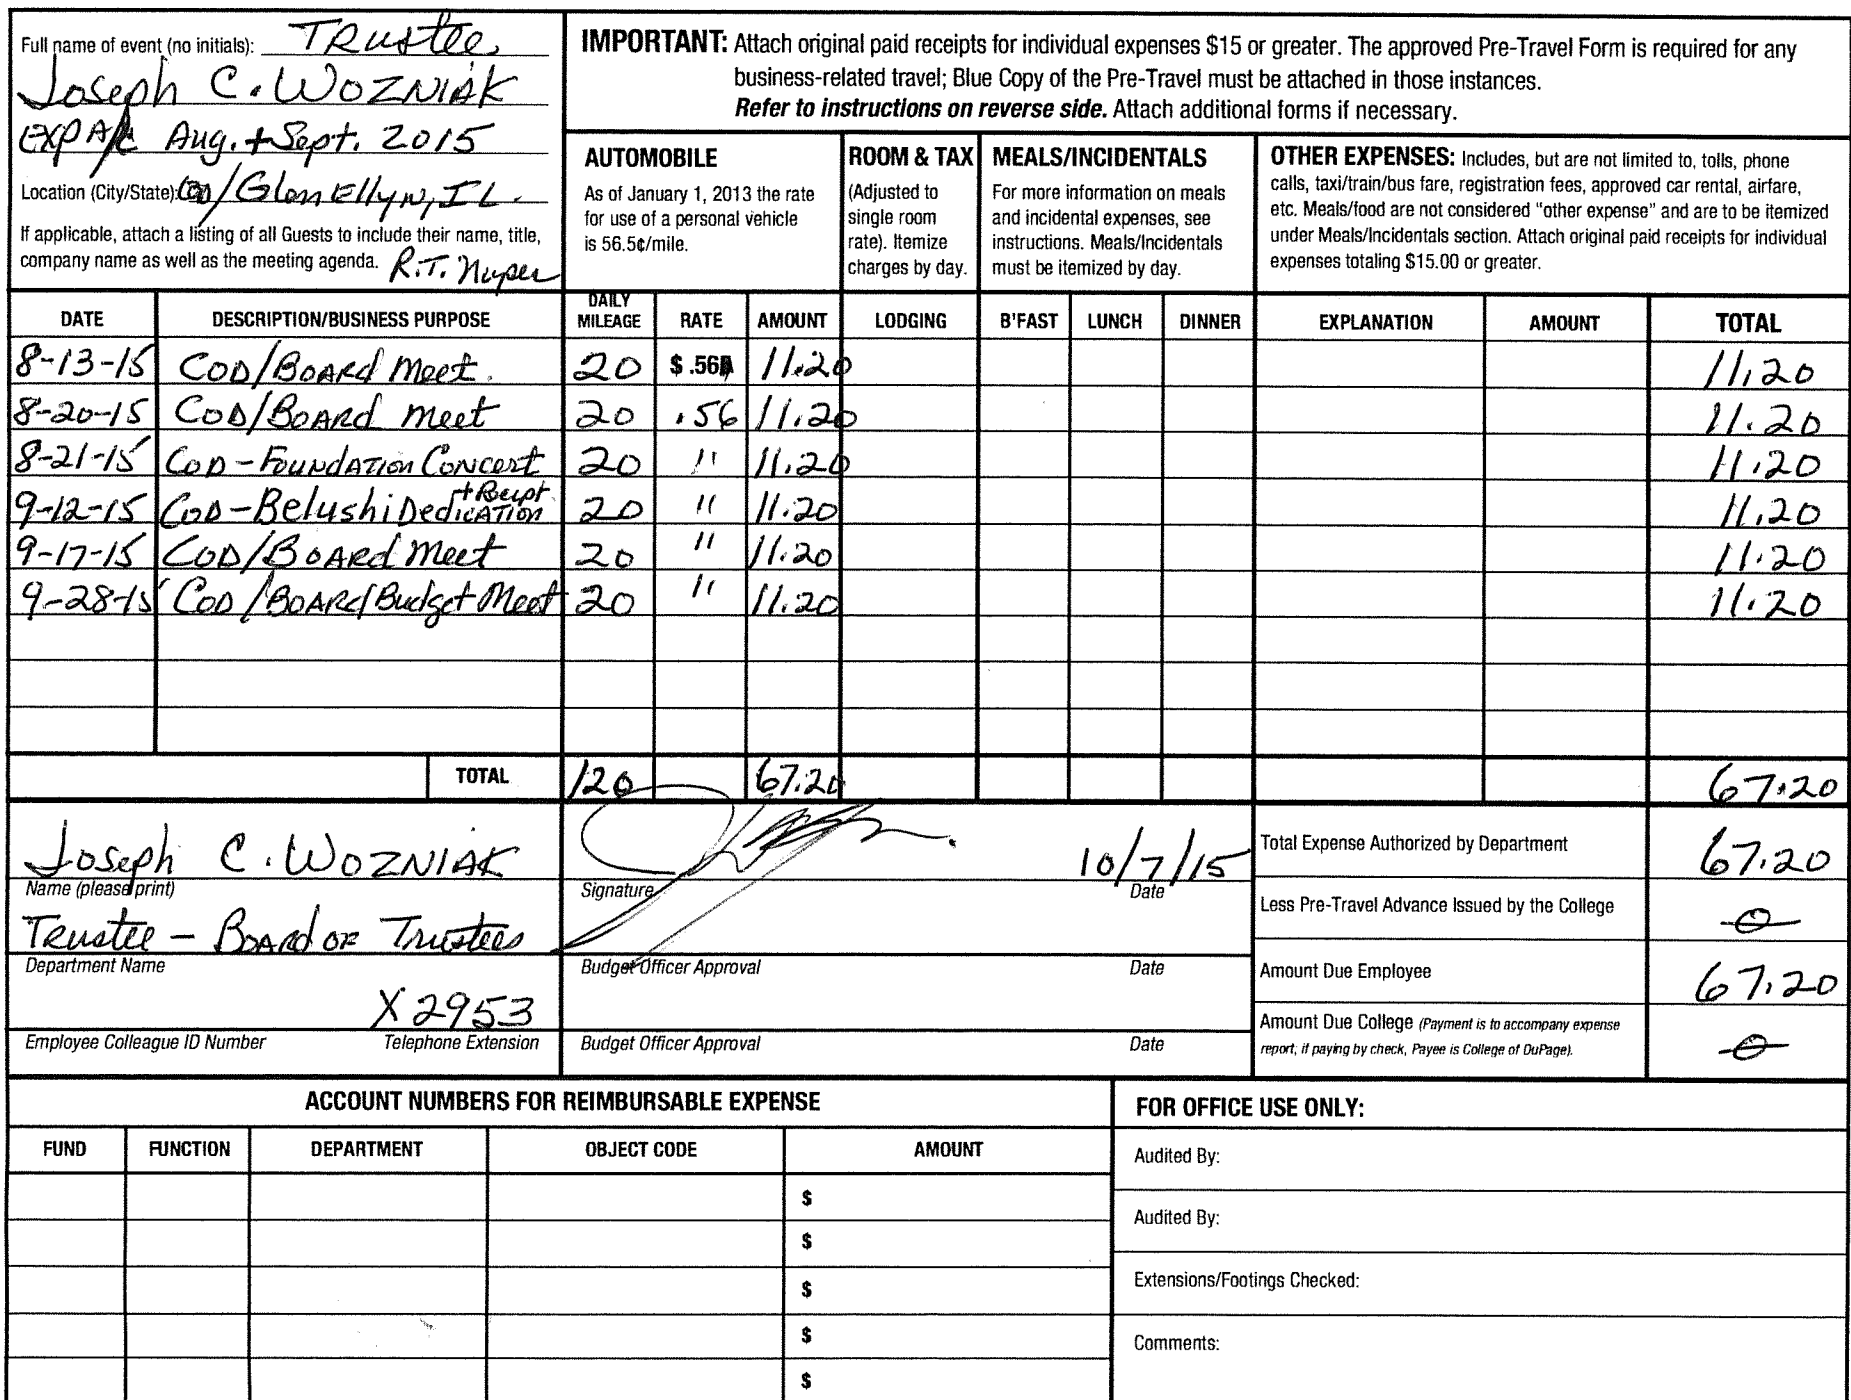 Full name of event (no initials): Trustee
Joseph C. WOZNIAK
EXP A/C Aug. + Sept. 2015
Location (City/State): COD/Glen Ellyn, IL.
If applicable, attach a listing of all Guests to include their name, title,
company name as well as the meeting agenda. R.T.
IMPORTANT: Attach original paid receipts for individual expenses $15 or greater. The approved Pre-Travel Form is required for any
business-related travel; Blue Copy of the Pre-Travel must be attached in those instances.
Refer to instructions on reverse side. Attach additional forms if necessary.
AUTOMOBILE
As of January 1, 2013 the rate
for use of a personal vehicle
is 56.5¢/mile.
ROOM & TAX
(Adjusted to
single room
rate). Itemize
charges by day.
MEALS/INCIDENTALS
For more information on meals
and incidental expenses, see
instructions. Meals/Incidentals
must be itemized by day.
OTHER EXPENSES: Includes, but are not limited to, tolls, phone
calls, taxi/train/bus fare, registration fees, approved car rental, airfare,
etc. Meals/food are not considered "other expense" and are to be itemized
under Meals/Incidentals section. Attach original paid receipts for individual
expenses totaling $15.00 or greater.
DATE DESCRIPTION/BUSINESS PURPOSE DAILY MILEAGE RATE AMOUNT LODGING B'FAST LUNCH DINNER EXPLANATION AMOUNT TOTAL
8-13-15 COD/BOARD Meet. 20 $ .56 11.20 11.20
8-20-15 COD/BOARD Meet 20 .56 11.20 11.20
8-21-15 COD-FOUNDATION Concert 20 " 11.20 11.20
9-12-15 COD-Belushi Dedication + Recpt. 20 " 11.20 11.20
9-17-15 COD/BOARD Meet 20 " 11.20 11.20
9-28-15 COD/BOARD/Budget Meet 20 " 11.20 11.20
TOTAL 120 67.20 67.20
Joseph C. WOZNIAK
Name (please print)
Trustee - BOARD OF Trustees
Department Name
X2953
Employee Colleague ID Number Telephone Extension
10/7/15
Signature Date
Budget Officer Approval Date
Budget Officer Approval Date
Total Expense Authorized by Department 67.20
Less Pre-Travel Advance Issued by the College 0
Amount Due Employee 67.20
Amount Due College (Payment is to accompany expense
report; if paying by check, Payee is College of DuPage). 0
ACCOUNT NUMBERS FOR REIMBURSABLE EXPENSE
FUND FUNCTION DEPARTMENT OBJECT CODE AMOUNT
$
$
$
$
$
FOR OFFICE USE ONLY:
Audited By:
Audited By:
Extensions/Footings Checked:
Comments: